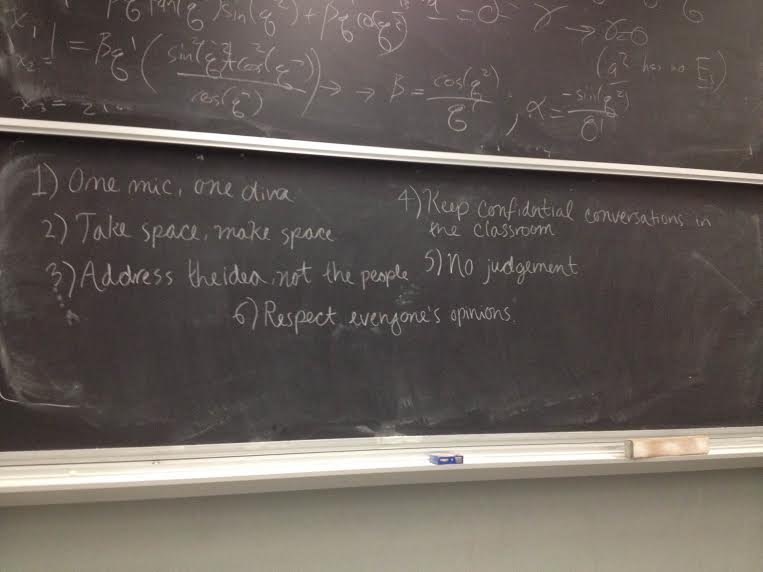 = Bq' ( sin²(q²)+cos²(q²) / cos(q²) ) → → B = cos(q²) / q' , α = -sin(q²) / q'
→ r=0
1) One mic, one diva
2) Take space, make space
3) Address the idea, not the people
4) Keep confidential conversations in
the classroom
5) No judgement
6) Respect everyone's opinions.